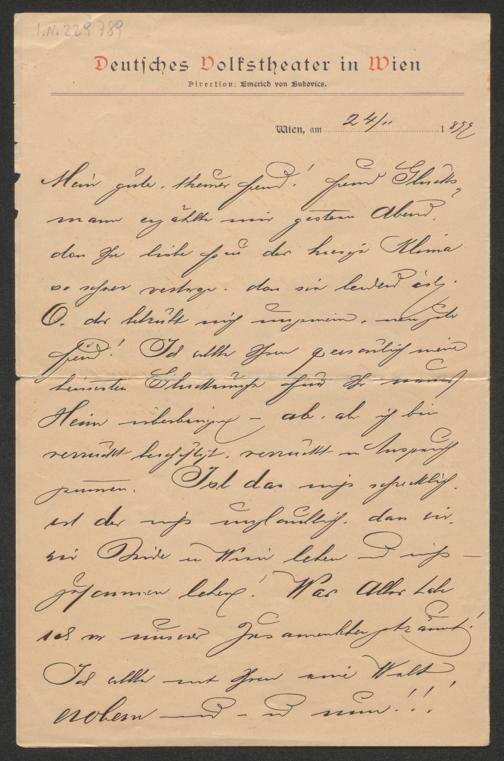 I.N. 229789
Deutsches Volkstheater in Wien
Direction: Emerich von Bukovics.
Wien, am 24/11 1899
Mein guter, theurer Freund! Freund Glücks-
mann erzählte mir gestern Abend,
dass Ihre liebe Frau das hiesige Klima
so schwer vertrage, dass sie leidend ist.
O, das betrübt mich ungemein, mein guter
Freund! Ich wollte Ihnen persönlich meine
heissesten Glückwünsche für Ihr neues
Heim überbringen — aber, aber ich bin
verrückt beschäftigt, verrückt in Anspruch
genommen. Ist das nicht schrecklich,
ist das nicht unglaublich, dass wir,
wir Beide in Wien leben und nicht —
zusammen leben! Was Alles habe
ich von unserer Zusammenleben geträumt!
Ich wollte mit Ihnen eine Welt
erobern — und — und nun!!!